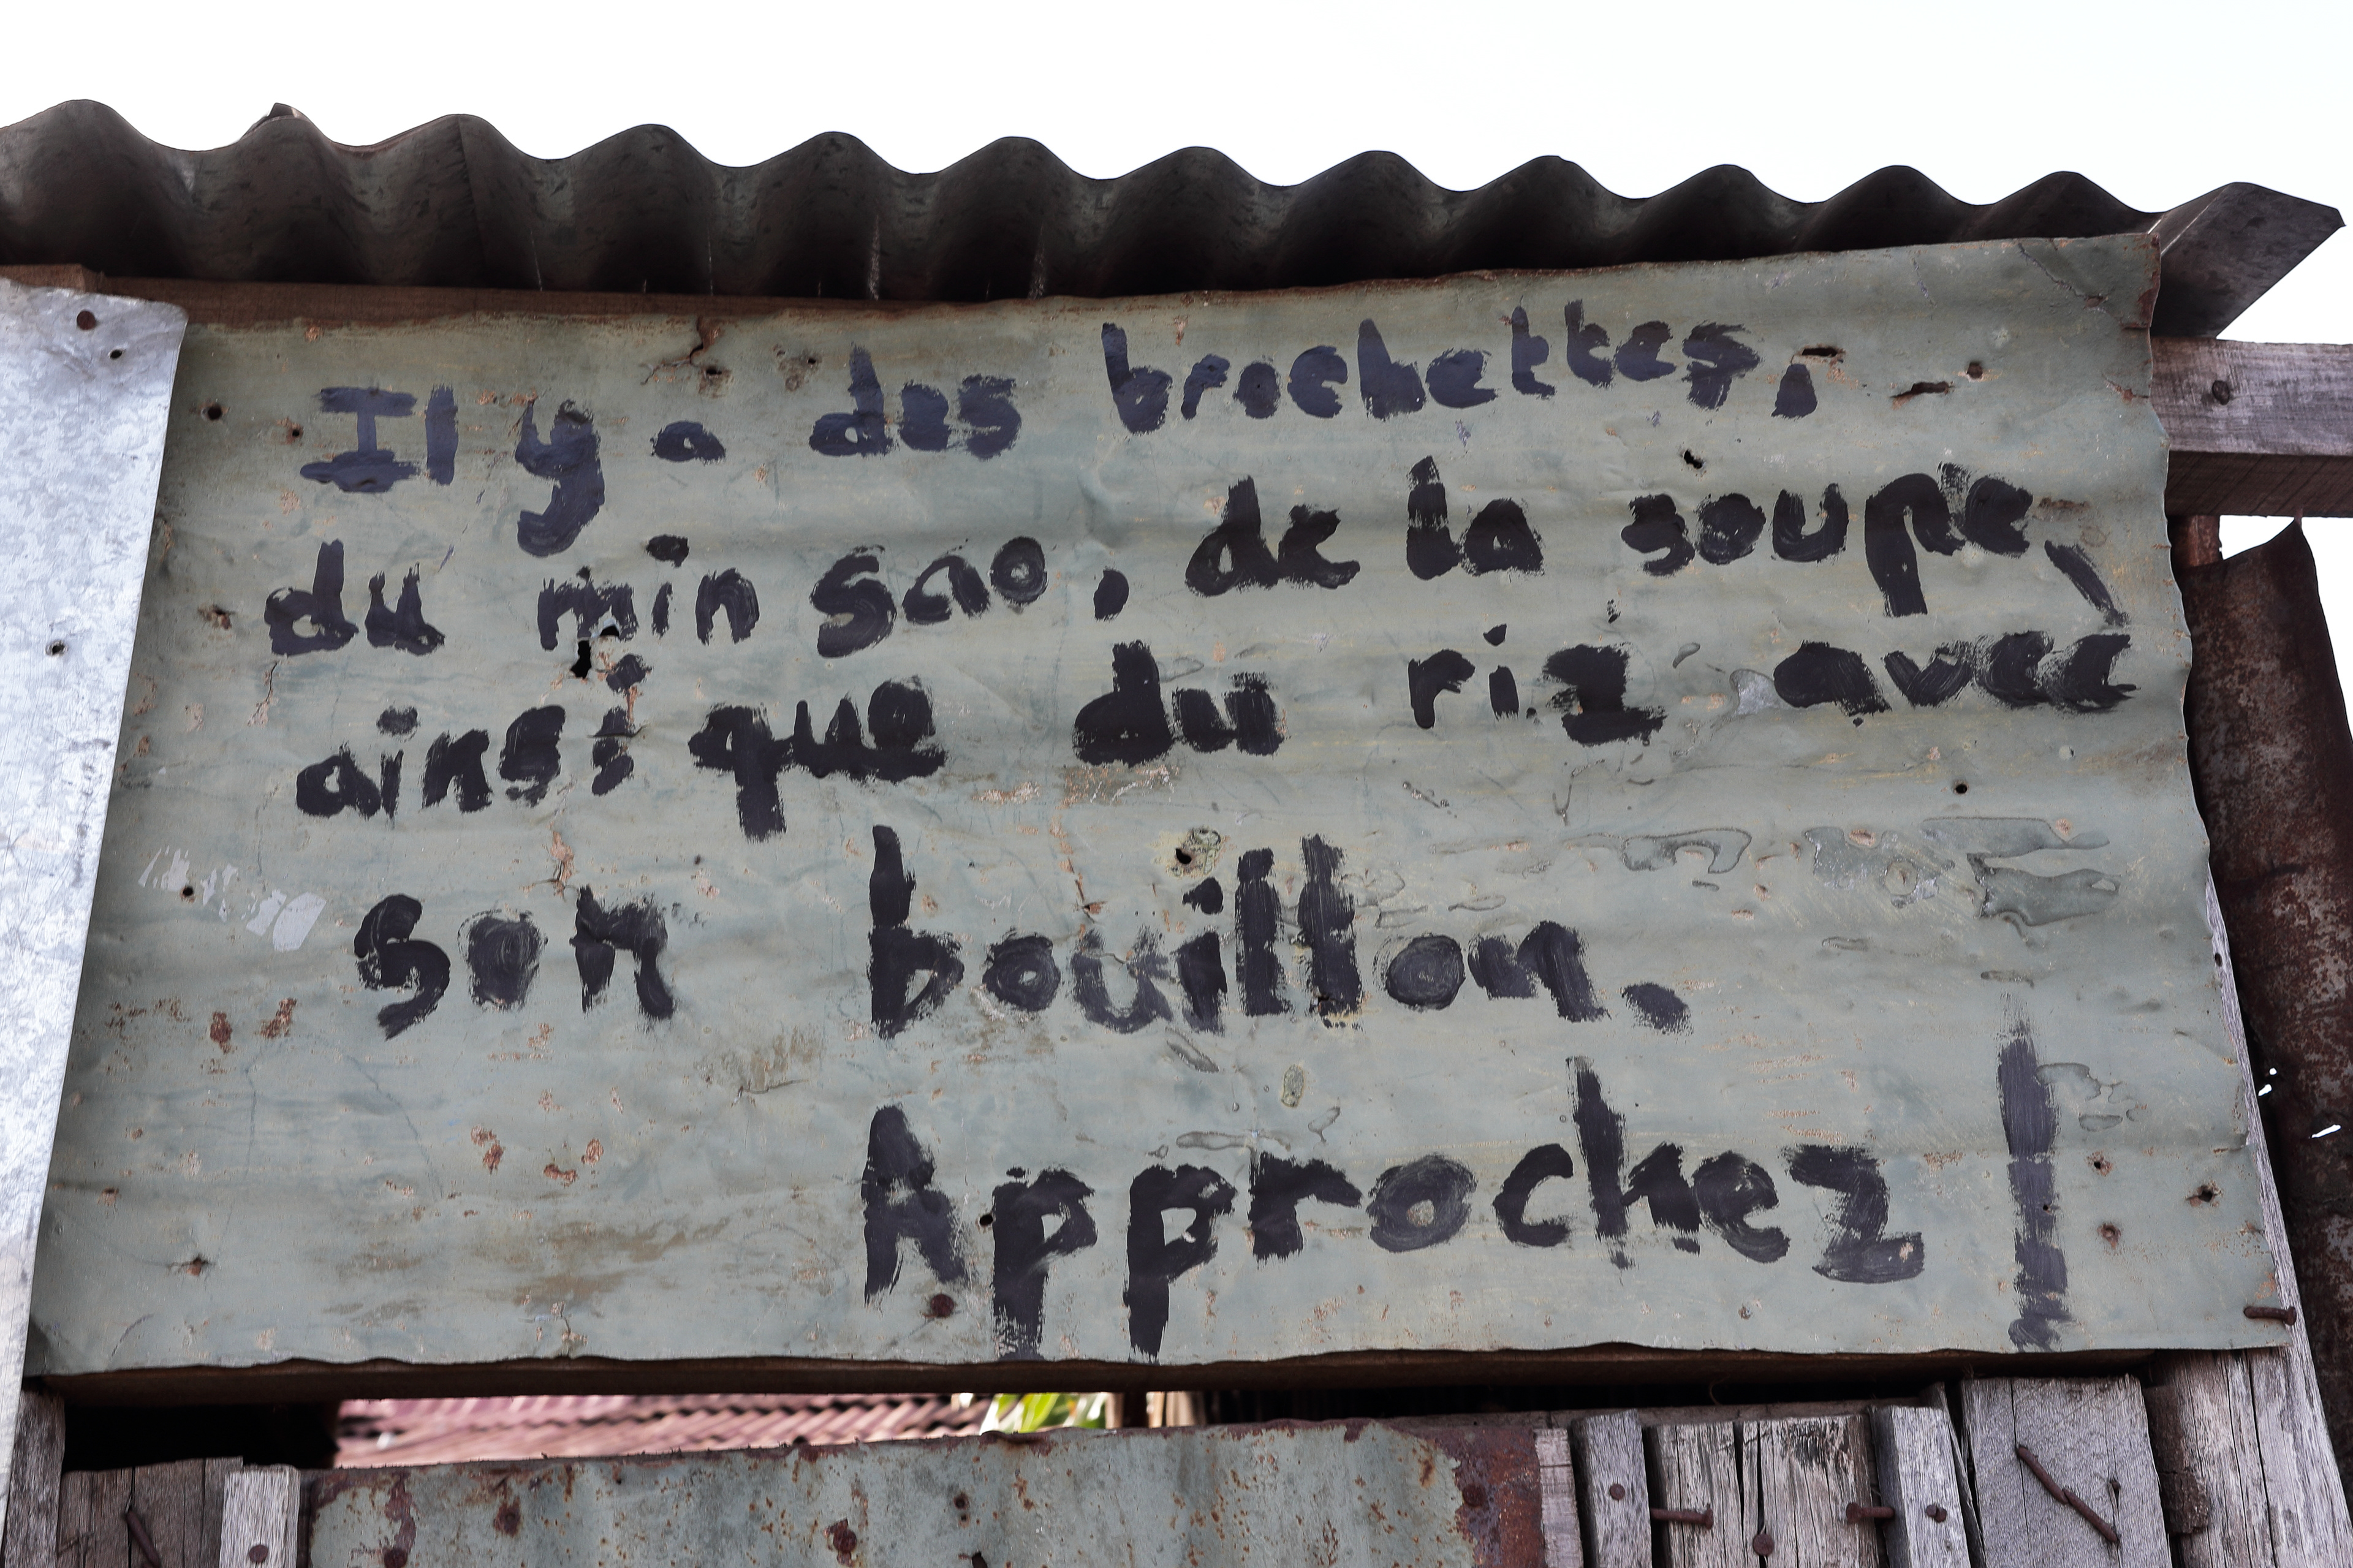 Il y a des brochettes,
du min sao, de la soupe,
ainsi que du riz avec
son bouillon.
Approchez !